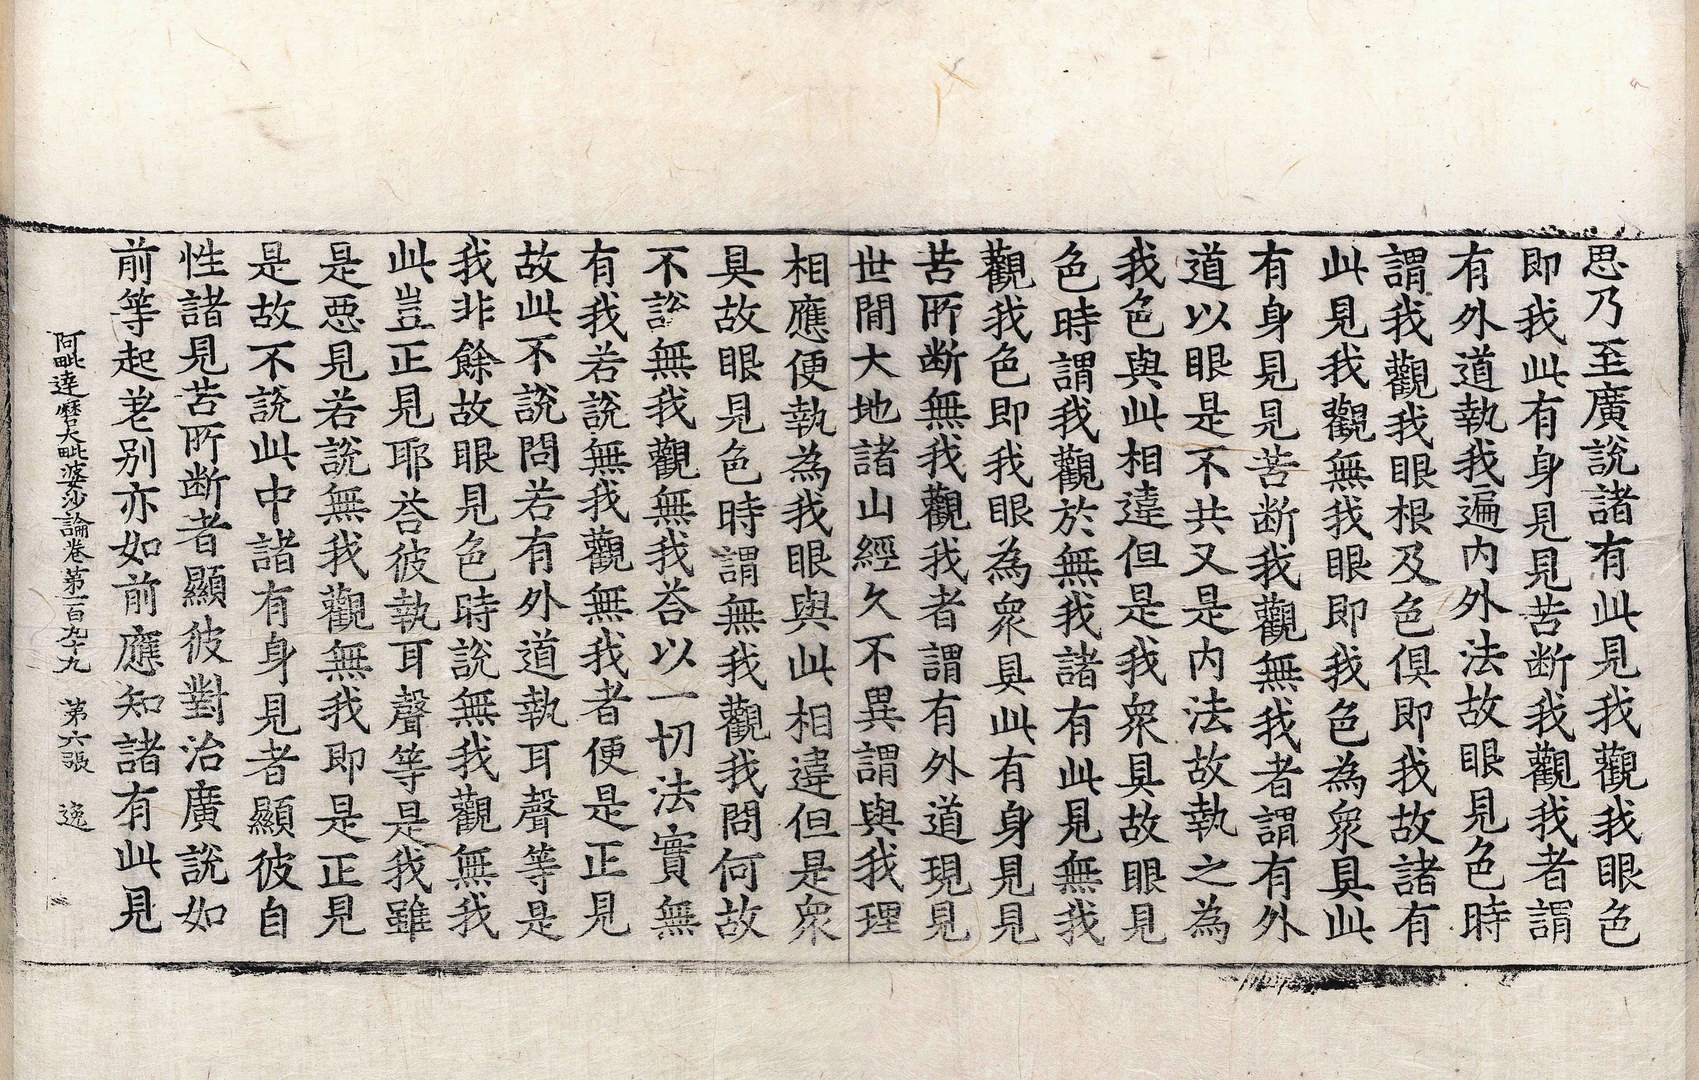 思乃至廣說諸有此見我觀我眼色
即我此有身見見苦断我觀我者謂
有外道執我遍内外法故眼見色時
謂我觀我眼根及色俱即我故諸有
此見我觀無我眼即我色為衆具此
有身見見苦断我觀無我者謂有外
道以眼是不共又是内法故執之為
我色與此相違但是我衆具故眼見
色時謂我觀於無我諸有此見無我
觀我色即我眼為衆具此有身見見
苦所断無我觀我者謂有外道現見
世間大地諸山經久不異謂與我理
相應便執為我眼與此相違但是衆
具故眼見色時謂無我觀我問何故
不說無我觀無我荅以一切法實無
有我若說無我觀無我者便是正見
故此不說問若有外道執耳聲等是
我非餘故眼見色時說無我觀無我
此豈正見耶荅彼執耳聲等是我雖
是惡見若說無我觀無我即是正見
是故不說此中諸有身見者顯彼自
性諸見苦所断者顯彼對治廣說如
前等起差别亦如前應知諸有此見
阿毗達磨大毗婆沙論卷第一百九十九 第六張 逸